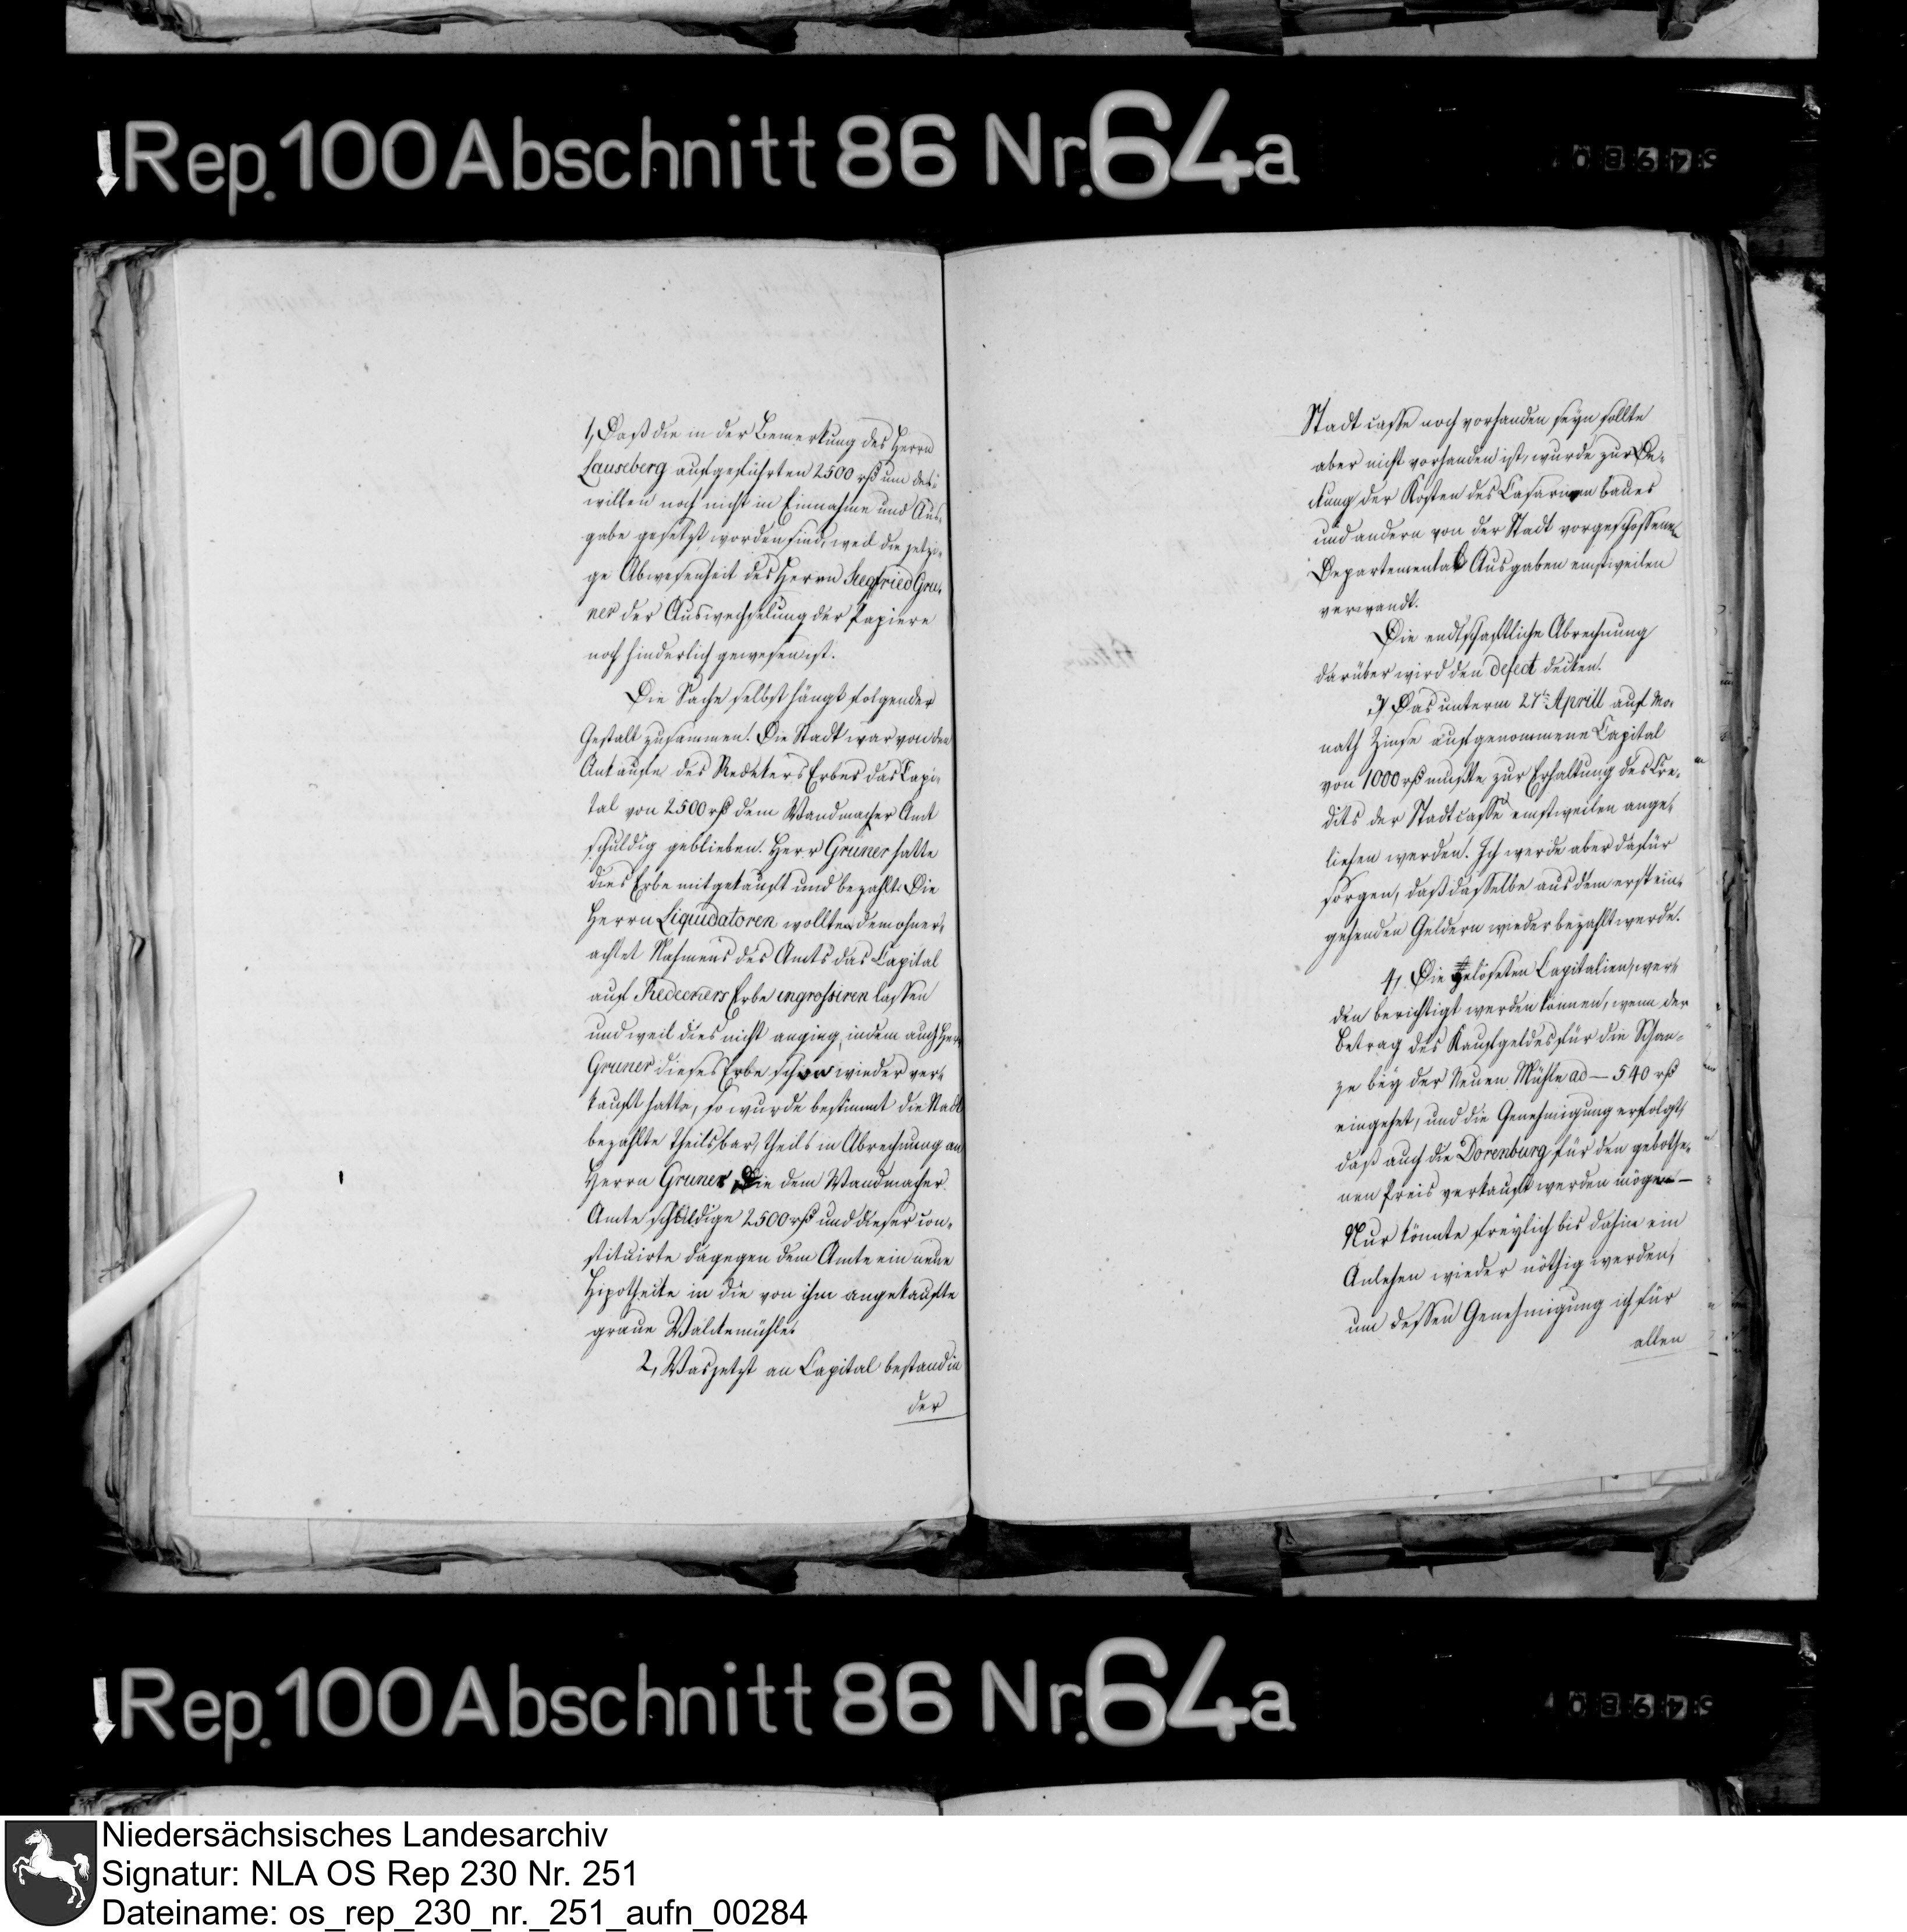 Rep. 100 Abschnitt 86 Nr. 64a
1, Daß die in der Bemerkung des Herrn
Lauseberg aufgeführten 2500 rß um des¬
willen noch nicht in Einnahme und Aus¬
gabe gesetzt worden sind, weil die jetzi¬
ge Abwesenheit des Herrn Siegfried Gru¬
ner der Auswechselung der Papiere
noch hinderlich gewesen ist.
Die Sache selbst hängt folgender
Gestalt zusammen! Die Stadt war von dem
Ankaufe des Redekers Erbes das Capi¬
tal von 2500 rß dem Wandmacher Amt
schuldig geblieben. Herr Gruner hatte
dies Erbe mitgekauft und bezahlt. Die
Herrn Liquidatoren wollten demohner¬
achtet Nahmens des Amts das Capital
auf Redeckers Erbe ingrossiren lassen
und weil dies nicht anging, indem auch Herr
Gruner dieses Erbe schon wieder ver¬
kauft hatte, so wurde bestimmt die Stadt
bezahlte theils bar, theils in Abrechnung an
Herrn Gruner die dem Wandmacher
Amte schuldige 2500 rß und dieser con¬
stituirte dagegen dem Amte ein neue
Hipotheke in die von ihm angekaufte
graue Walckemühle.
2, Was jetzt an Capital bestand in
der
Stadt casse noch vorhanden seyn sollte
aber nicht vorhanden ist, wurde zur De¬
ckung der Kosten des Casarnen baues
und andern von der Stadt vorgeschossenen
Departemental Ausgaben einstweilen
verwandt.
Die endtschaftliche Abrechnung
darüber wird den defect decken.
3, Das unterm 27t Aprill auf Mo¬
nath Zinse aufgenommene Capital
von 1000 rß mußte zur Erhaltung des Cre¬
dits der Stadtcasse einstweilen ange¬
liehen werden. Ich werde aber dafür
sorgen, daß dasselbe aus dem erst ein¬
gehenden Geldern wieder bezahlt werde.
4, Die gelöseten Capitalien wer¬
den berichtigt werden können, wenn der
Betrag des Kaufgeldes für die Schan¬
ze bey der Neuen Mühle ad — 540 rß
eingehet, und die Genehmigung erfolgt,
daß auch die Dorenburg für den gebothe¬
nen Preis verkauft werden mögen —
Nur könnte freylich bis dahin ein
Anlehen wieder nöthig werden,
um dessen Genehmigung ich für
allen
Rep. 100 Abschnitt 86 Nr. 64a
Niedersächsisches Landesarchiv
Signatur: NLA OS Rep 230 Nr. 251
Dateiname: os_rep_230_nr._251_aufn_00284